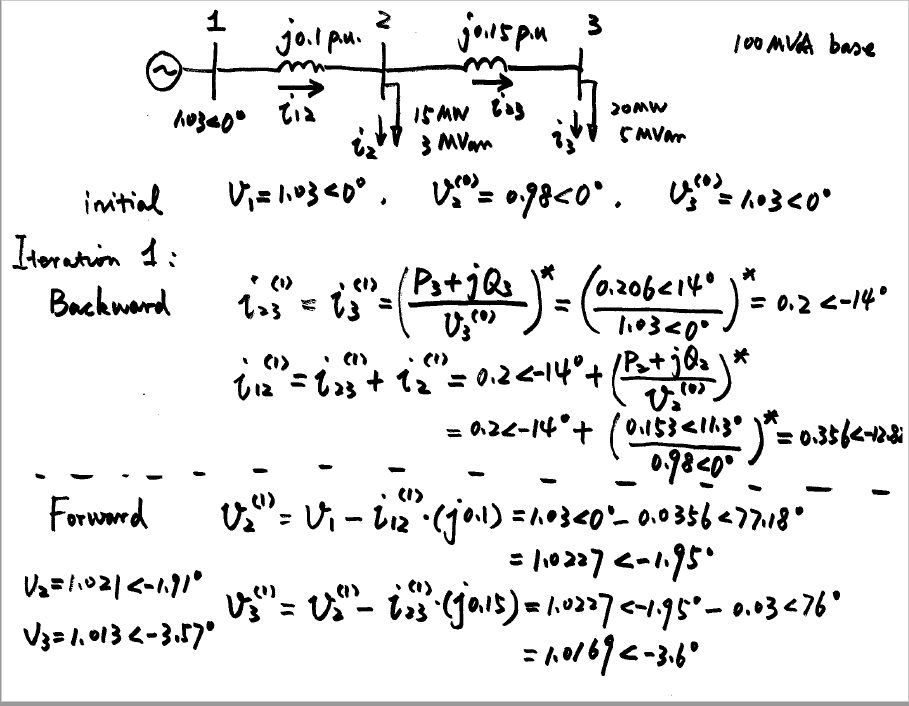 1 j0.1 p.u. 2 j0.15 p.u 3 100 MVA base
1.03<0° i₁₂ i₂ 15 MW i₂₃ i₃ 20MW
3 MVar 5 MVar
initial V₁=1.03<0°. V₂⁽⁰⁾= 0.98<0°. V₃⁽⁰⁾=1.03<0°
Iteration 1:
Backward i₂₃⁽¹⁾ = i₃⁽¹⁾ = (P₃+jQ₃ / V₃⁽⁰⁾)* = (0.206<14° / 1.03<0°)* = 0.2 <-14°
i₁₂⁽¹⁾ = i₂₃⁽¹⁾ + i₂⁽¹⁾ = 0.2<-14° + (P₂+jQ₂ / V₂⁽⁰⁾)*
= 0.2<-14° + (0.153<11.3° / 0.98<0°)* = 0.356<-12.8
Forward V₂⁽¹⁾ = V₁ - i₁₂⁽¹⁾·(j0.1) = 1.03<0° - 0.0356<77.18°
= 1.0227 <-1.95°
V₂=1.021<-1.91°
V₃=1.013<-3.57°
V₃⁽¹⁾ = V₂⁽¹⁾ - i₂₃⁽¹⁾·(j0.15) = 1.0227<-1.95° - 0.03<76°
= 1.0169 <-3.6°